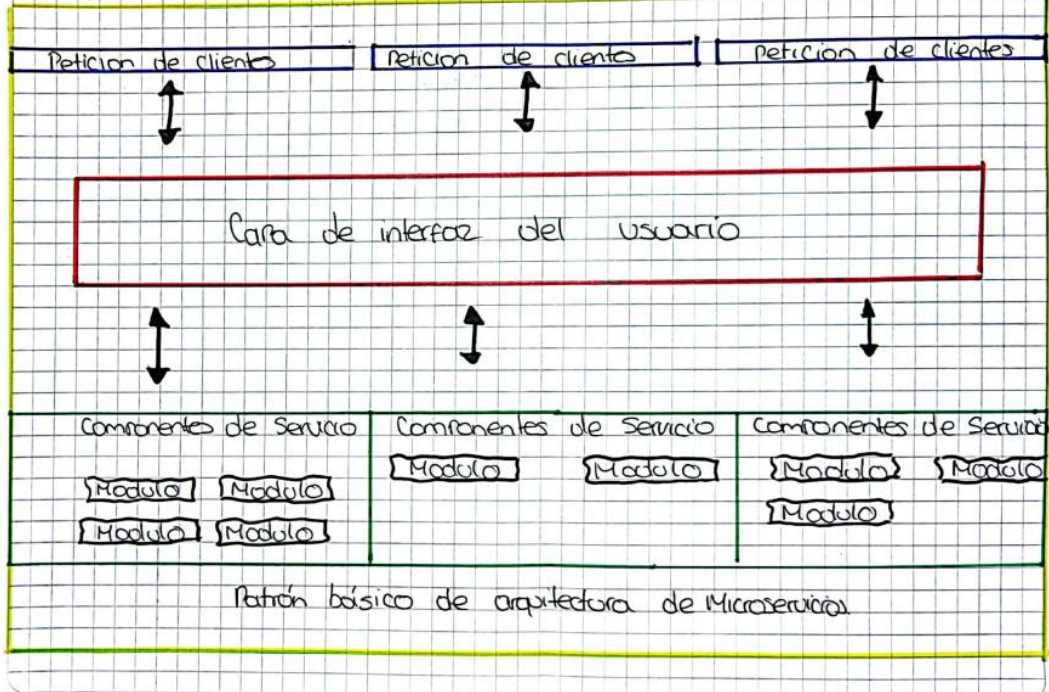 Peticion de cliente
Peticion de cliente
Peticion de clientes
Capa de interfaz del usuario
Componentes de Servicio
Modulo Modulo
Modulo Modulo
Componentes de Servicio
Modulo Modulo
Componentes de Servicio
Modulo Modulo
Modulo
Patrón básico de arquitectura de Microservicios